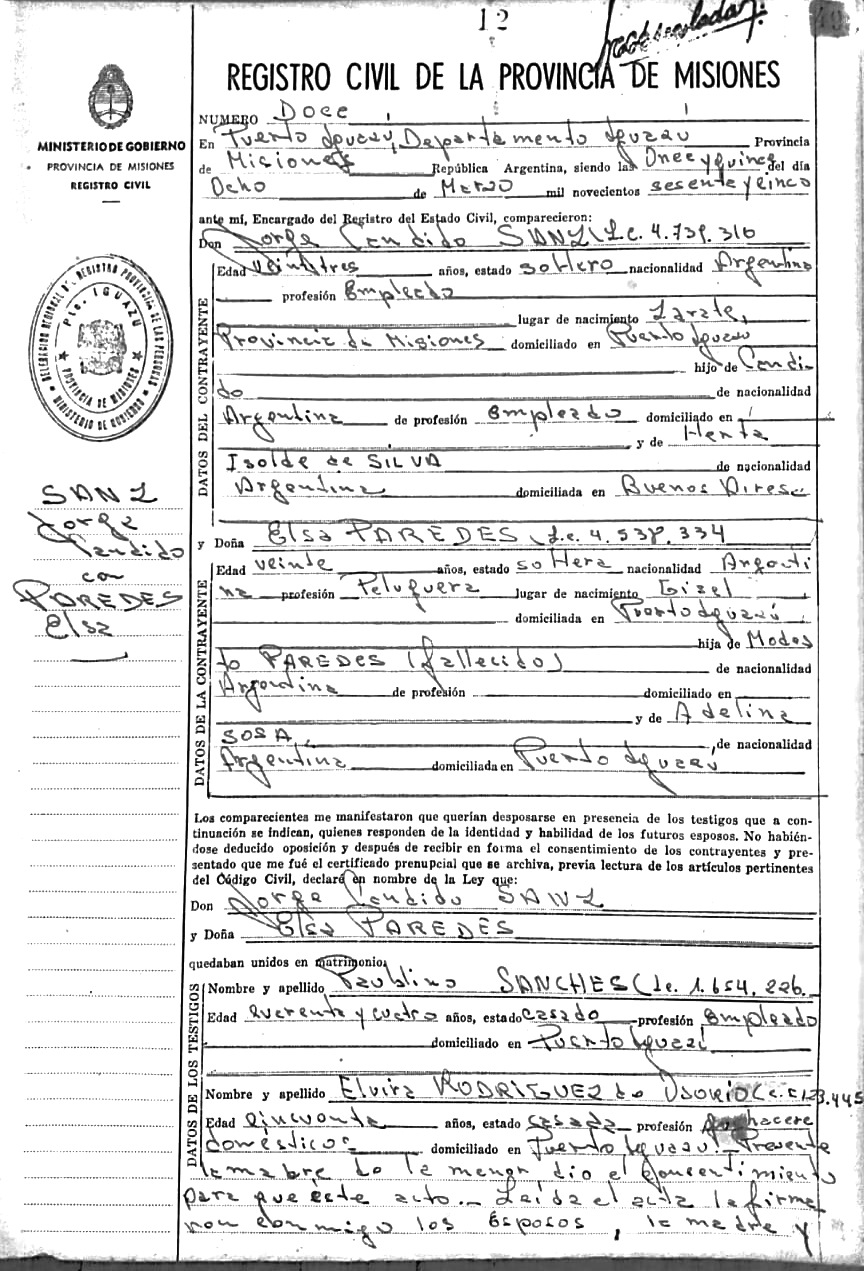 12
REGISTRO CIVIL DE LA PROVINCIA DE MISIONES
MINISTERIO DE GOBIERNO
PROVINCIA DE MISIONES
REGISTRO CIVIL
NUMERO Doce
En Puerto Iguazú, Departamento Iguazú Provincia
de Misiones República Argentina, siendo las Once y quince del día
Ocho de Marzo mil novecientos sesenta y cinco
ante mí, Encargado del Registro del Estado Civil, comparecieron:
Don Jorge Candido SANZ (L.e. 4.739.316
DATOS DEL CONTRAYENTE
Edad veintitres años, estado soltero nacionalidad Argentina
profesión Empleado
lugar de nacimiento Zarate,
Provincia de Misiones domiciliado en Puerto Iguazú
hijo de Candi-
do de nacionalidad
Argentina de profesión Empleado domiciliado en
y de Herta
Isolde de SILVA de nacionalidad
Argentina domiciliada en Buenos Aires
y Doña Elsa PAREDES L.c. 4.538.334
DATOS DE LA CONTRAYENTE
Edad veinte años, estado soltera nacionalidad Argenti
na profesión Peluquera lugar de nacimiento
domiciliada en Puerto Iguazú
hija de Modes
to PAREDES (fallecido) de nacionalidad
Argentina de profesión domiciliado en
y de Adelina
SOSA, de nacionalidad
Argentina domiciliada en Puerto Iguazú
Los comparecientes me manifestaron que querían desposarse en presencia de los testigos que a con-
tinuación se indican, quienes responden de la identidad y habilidad de los futuros esposos. No habién-
dose deducido oposición y después de recibir en forma el consentimiento de los contrayentes y pre-
sentado que me fué el certificado prenupcial que se archiva, previa lectura de los artículos pertinentes
del Código Civil, declaré en nombre de la Ley que:
Don Jorge Candido SANZ
y Doña Elsa PAREDES
quedaban unidos en matrimonio.
DATOS DE LOS TESTIGOS
Nombre y apellido Paublino SANCHES (l.e. 1.654.226.
Edad Cuarenta y cuatro años, estado casado profesión Empleado
domiciliado en Puerto Iguazú
Nombre y apellido Elvira RODRIGUEZ de OSORIO
Edad Cincuenta años, estado casada profesión hacere
domésticos domiciliado en Puerto Iguazú. Presente
la madre de la menor dio el consentimiento
para que este acto.- Leída el acta la firma
ron conmigo los Esposos, la madre y
SANZ
Jorge
Candido
con
PAREDES
Elsa